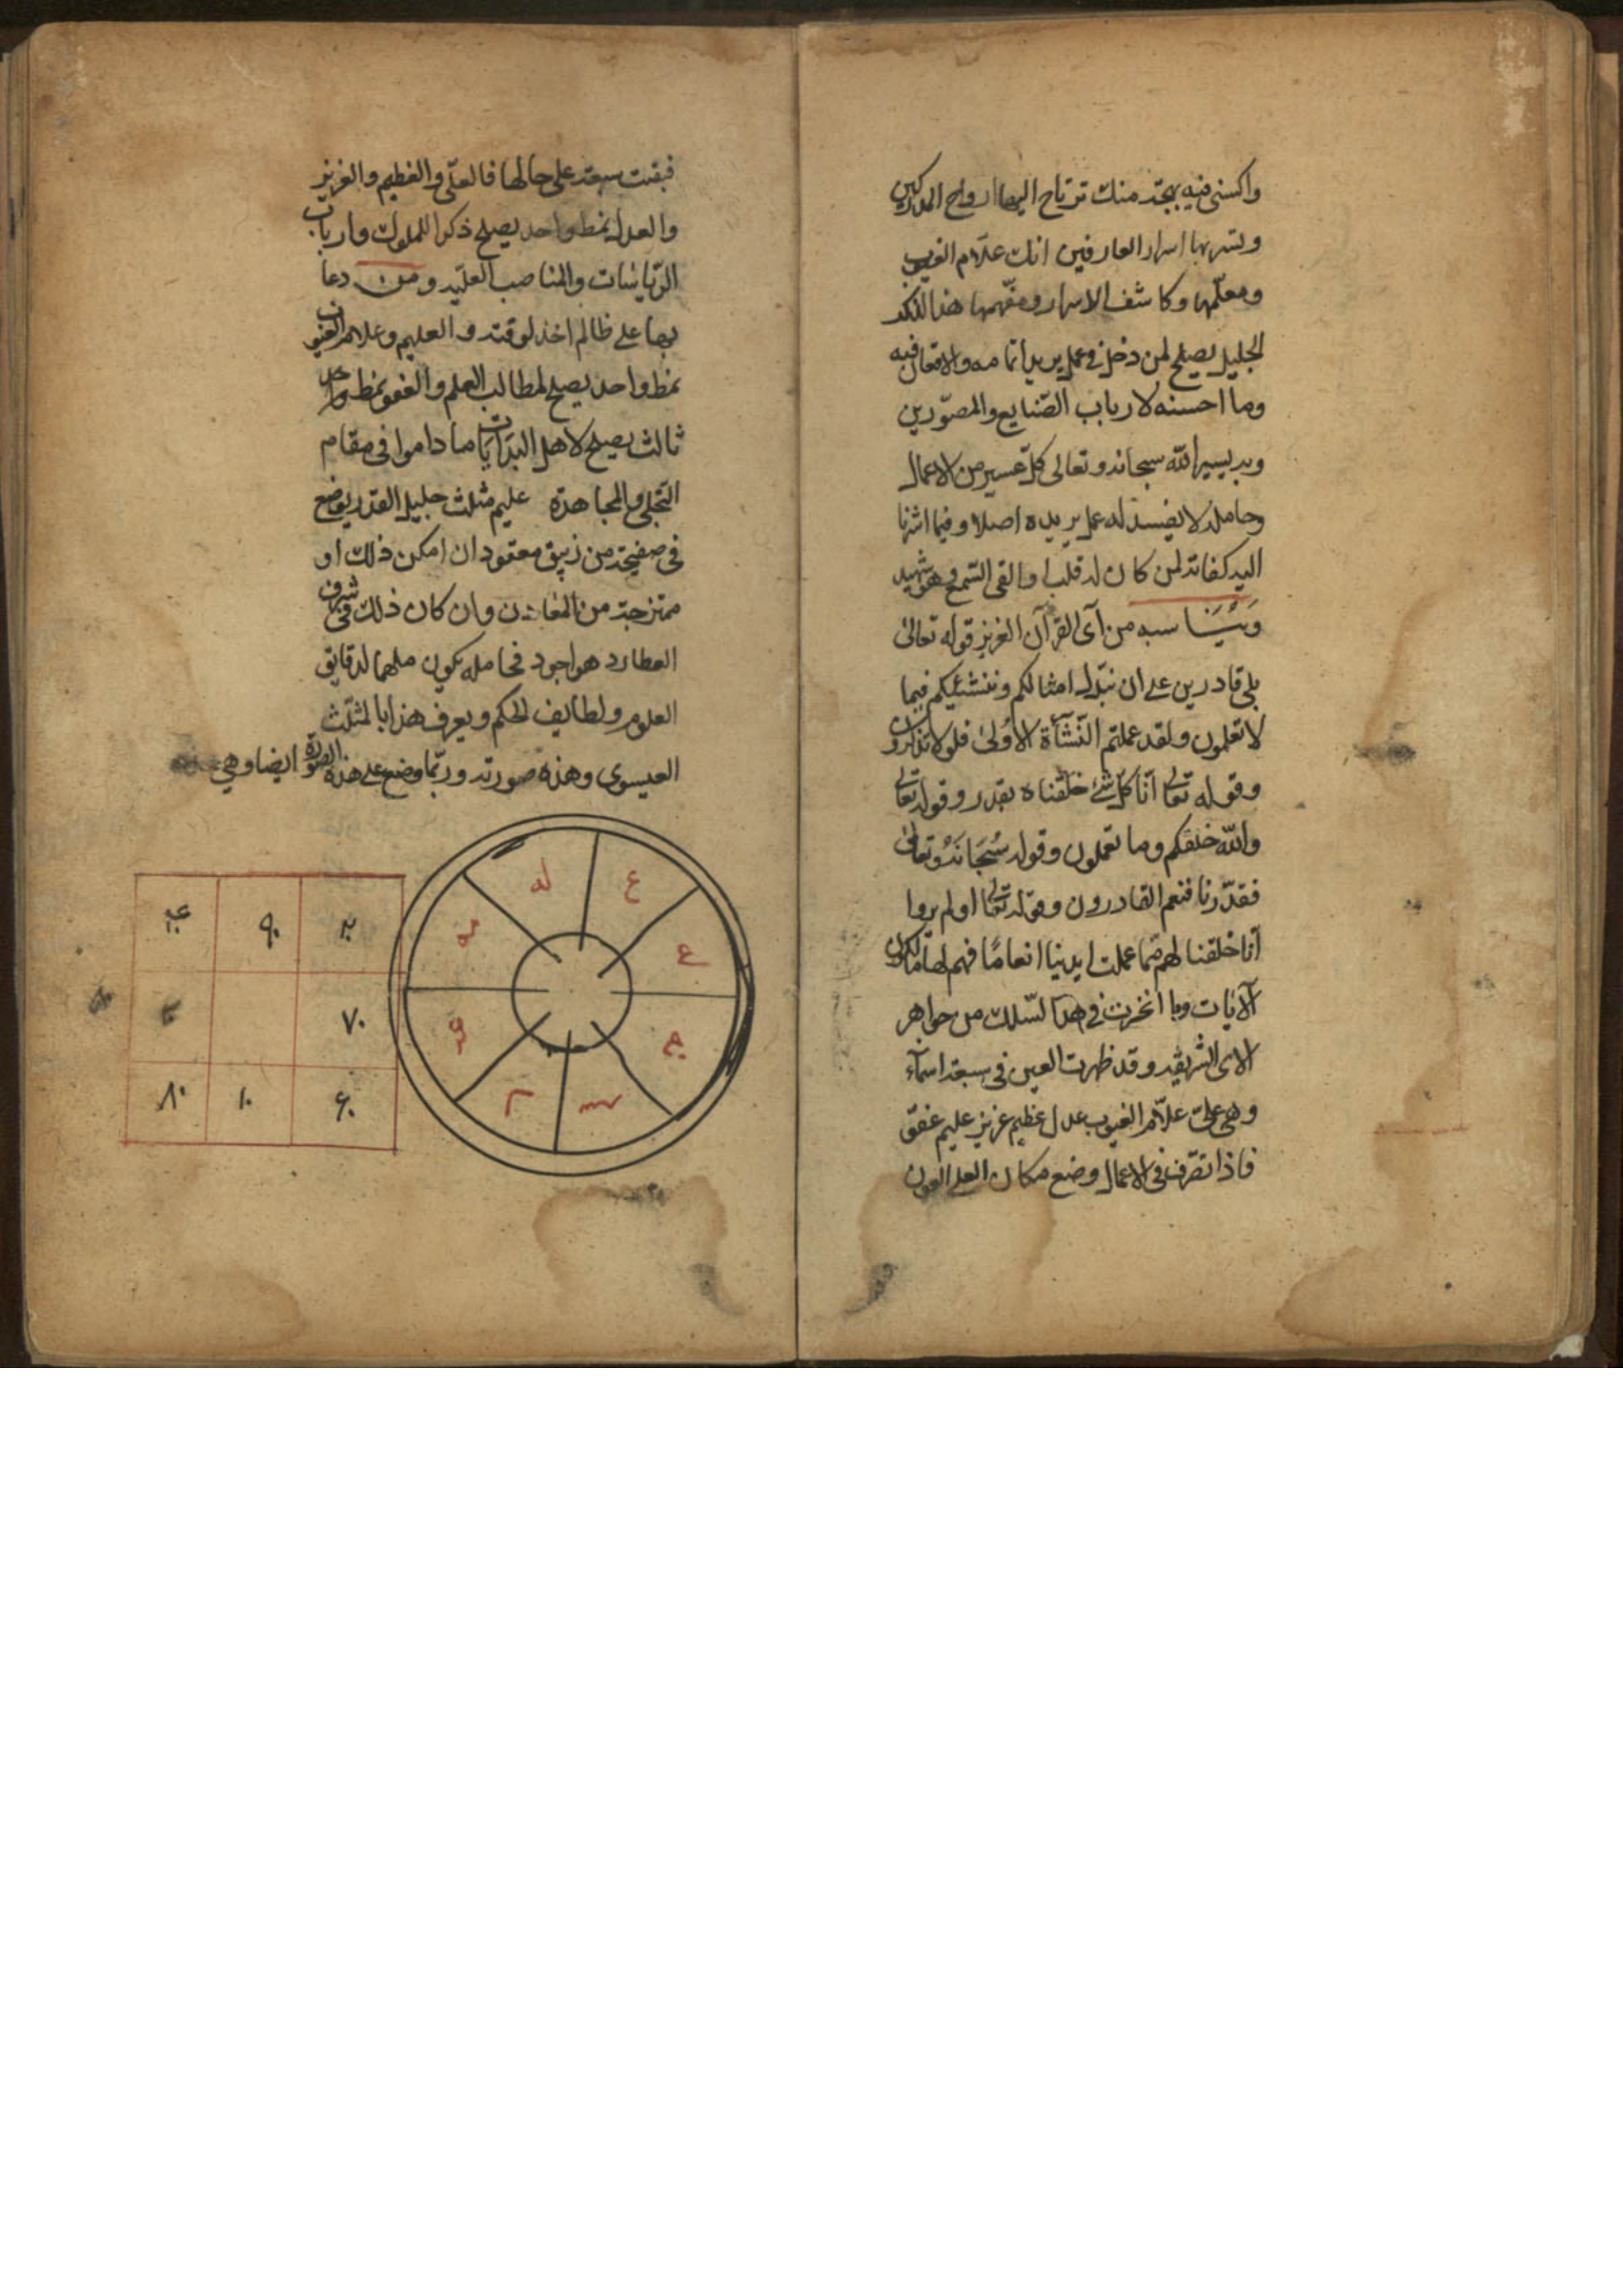 واكسنى فيه بهجة منك ترتاح اليها ارواح المدركين
وتسر بها اسرار العارفين انك علام الغيوب
ومعلمها وكاشف الاسرار ومفهمها هذا الذكر
الجليل يصلح لمن دخل فى عمل يريد اتمامه والاتقان فيه
وما احسنه لارباب الصّنايع والمصوّرين
وبه ييسر الله سبحانه وتعالى كلّ عسير من الاعمال
وحامله لا يفسد له عمل يريده اصلا وفيما اشرنا
اليه كفاية لمن كان له قلب او القى السّمع وهو شهيد
ويناسبه من آى القرآن العزيز قوله تعالى
بلى قادرين على ان نبدّل امثالكم وننشئكم فيما
لا تعلمون ولقد علمتم النّشأة الأولى فلولا تذكرون
وقوله تعالى انّا كلّ شئ خلقناه بقدر وقوله تعالى
والله خلقكم وما تعملون وقوله سُبحَانَهُ وتعالى
فقدّرنا فنعم القادرون وقوله تعالى اولم يروا
انا خلقنا لهم ممّا عملت ايدينا انعامًا فهم لها مالكون
الآيات وما انخرت فى هذا السّلك من جواهر
الاى الشريفه وقد ظهرت العين فى سبعة اسمآء
وهى على علاّم الغيوب عدل عظيم عزيز عليم عفوّ
فاذا تصرّف فى الاعمال وضع مكان العلى العون
فبقيت سبعة على حالها فالعلّى والعظيم والعزيز
والعدل نمط واحد يصلح ذكرا للملوك وارباب
الرّياسات والمناصب العليّه ومن دعا
بها على ظالم اخذ لوقته والعليم وعلام الغيوب
نمط واحد يصلح لمطالب العلم والعفو نمط واحد
ثالث يصلح لاهل البدايات ما داموا فى مقام
التجلى والمجاهدة عليم مثلث جليل القدر يوضع
فى صفيحة من زيبق معقود ان امكن ذلك او
ممتزجة من المعادن وان كان ذلك فى شرف
العطارد هو اجود فحامله يكون ملهما لدقايق
العلوم ولطايف الحكم ويعرف هذا بالمثلّث
العيسوى وهذه صورته وربّما وضع على هذه الصّورة ايضا وهى
له ع
ع
٩٠
٧٠
٨٠ ١٠ ٦٠